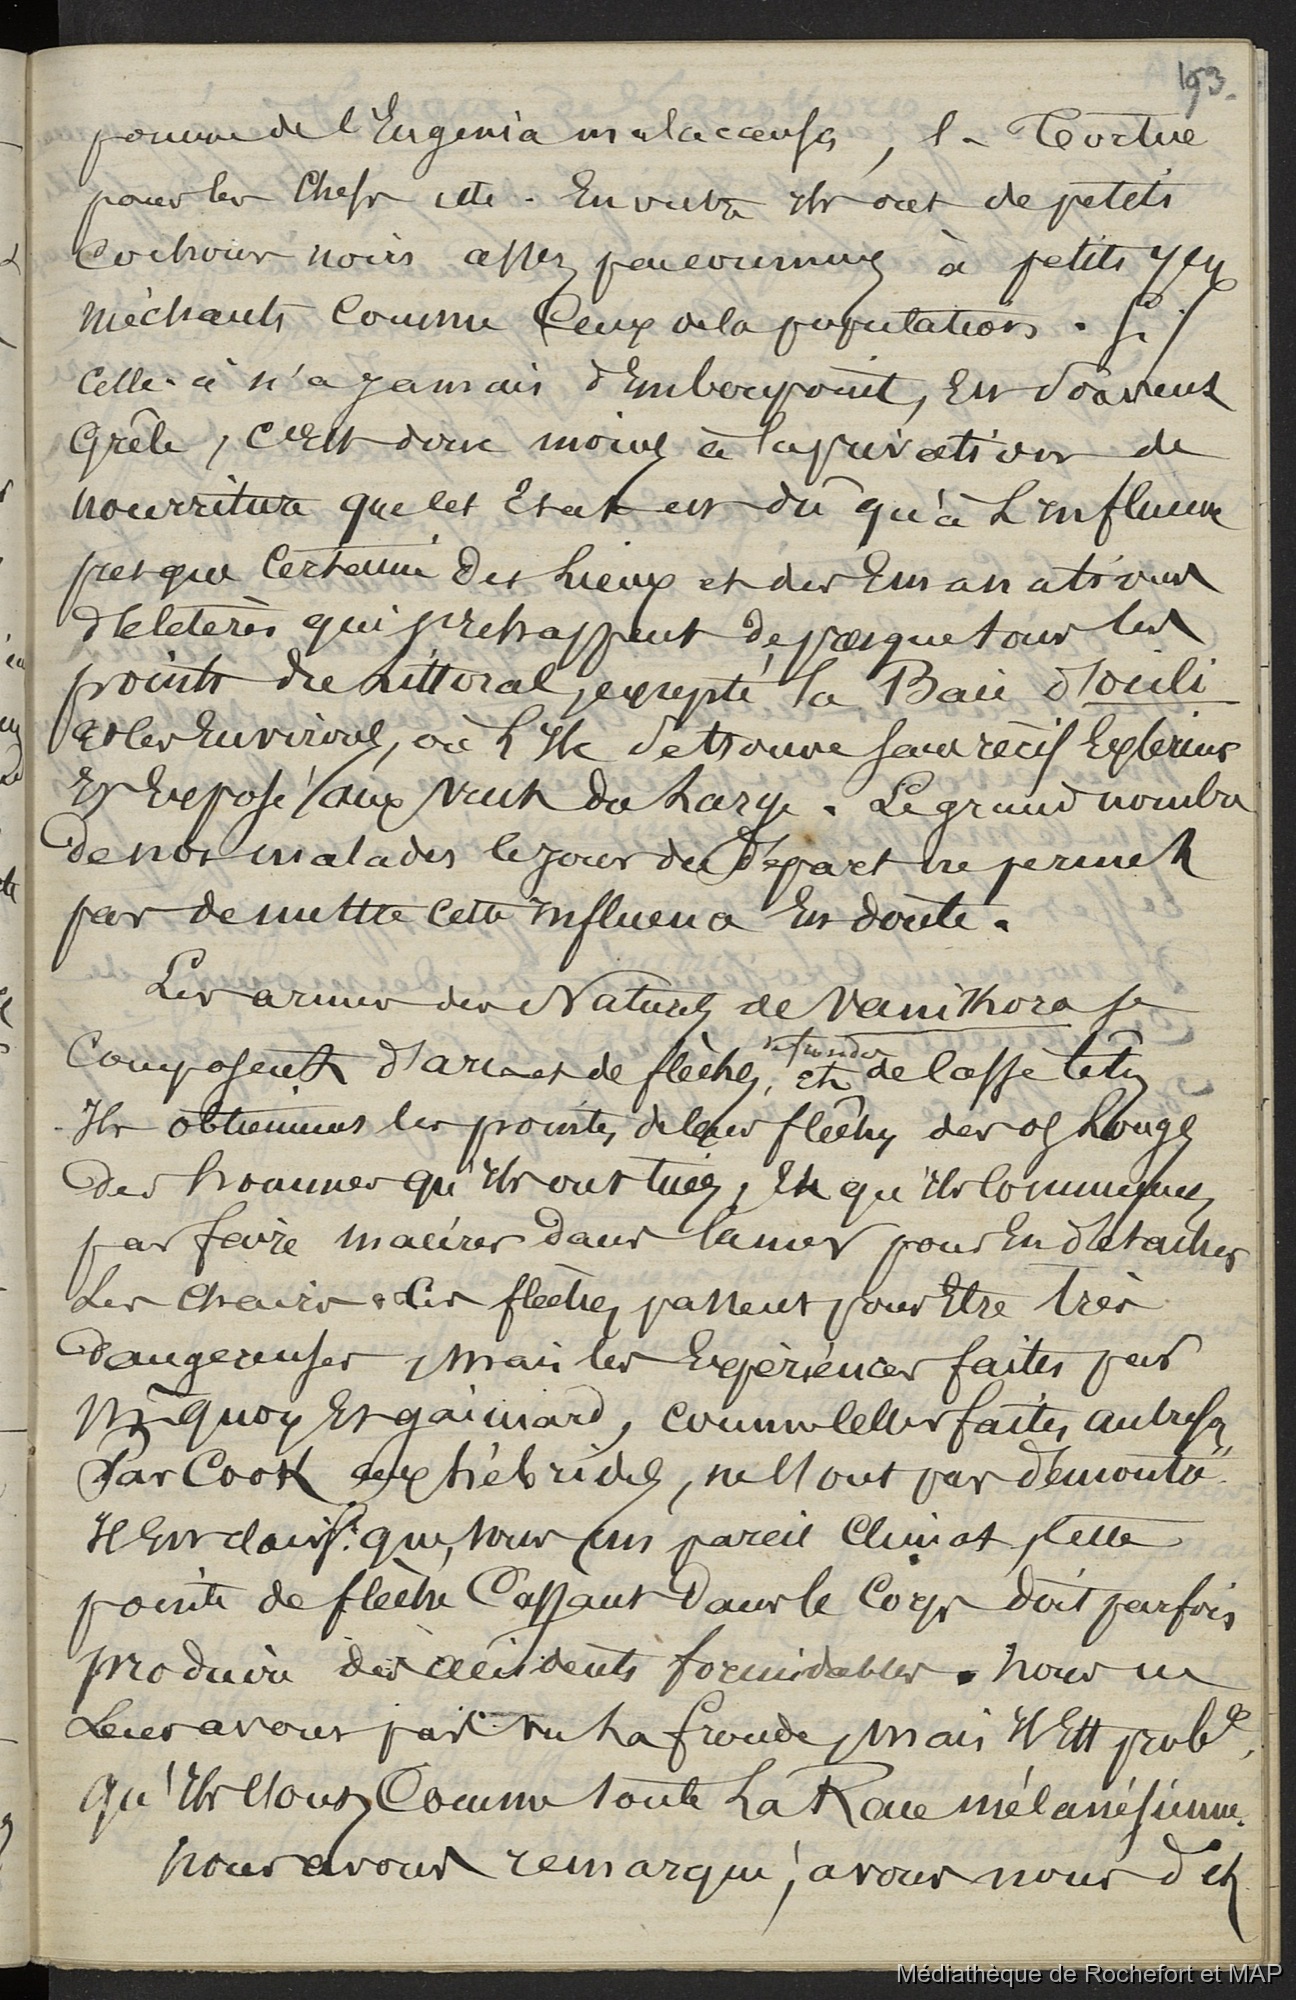 193.
pomme de l'Eugenia malaccensis, la Tortue
pour les Chefs etc. En outre ils ont de petits
Cochons noirs assez peu communs à petits yeux
méchants comme ceux de la population. Si
celle-ci n'a jamais d'Embonpoint, Est souvent
Grêle, c'Est donc moins à la privation de
nourriture que cet Etat est dû qu'à L'influence
presque certaine des Lieux et des Emanations
délétères qui s'échappent de presque tous les
points du Littoral, excepté la Baie d'ocili
et les Environs, où L'Ile se trouve sans récif Extérieur
Et Exposé aux vents du Large. Le grand nombre
de nos malades le jour du Départ ne permet
pas de mettre cette influence En doute.
Les armes des Naturels de Vanikoro se
Composent d'arcs et de flèches, de frondes et de casse têtes
Ils obtiennent les pointes de leurs flèches des os Longs
des hommes qu'ils ont tués, Et qu'ils commencent
par faire macérer dans la mer pour En détacher
Les chairs. Ces flèches passent pour Etre très
dangereuses, mais les Expériences faites par
Mrs Quoy Et gaimard, comme celles faites autrefs
Par Cook aux hébrides, ne l'ont pas démontré.
Il Est clair que, sous un pareil climat, cette
pointe de flèche Cassant Dans le Corps doit parfois
produire des accidents formidables. Nous ne
Leur avons pas vu La fronde, mais il Est probe.
qu'ils l'ont, Comme toute La Race mélanésienne.
Nous avons remarqué, avons nous dit
Médiathèque de Rochefort et MAP